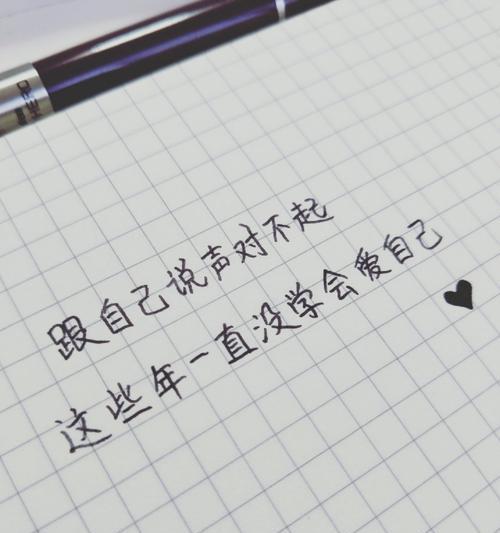 HERO
跟自己说声对不起
这些年一直没学会爱自己